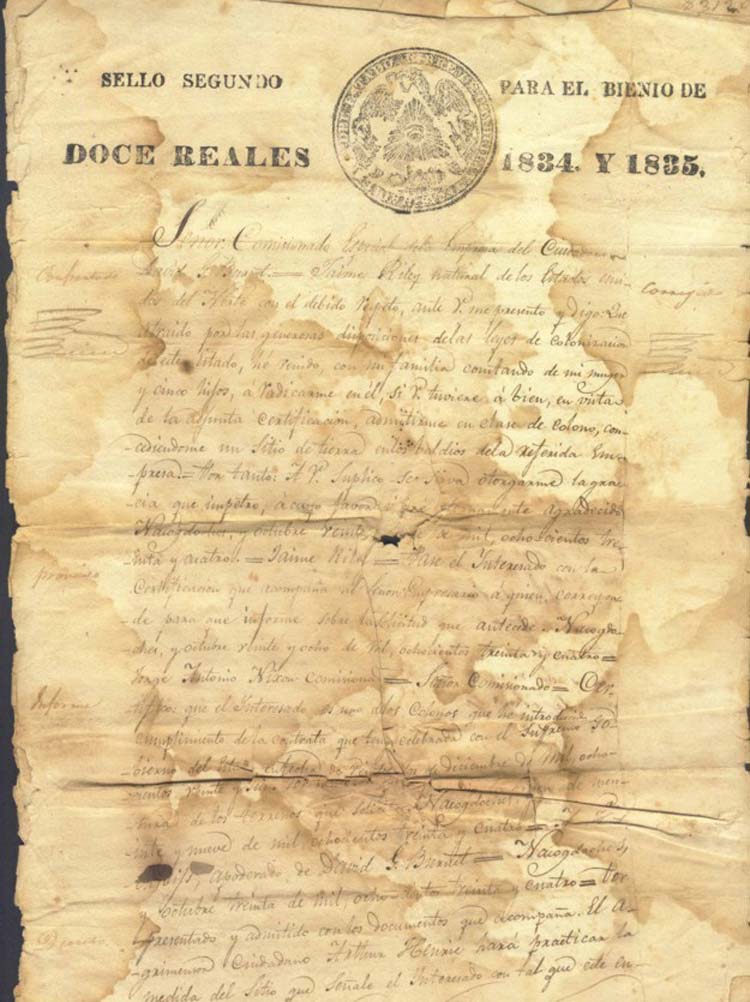 SELLO SEGUNDO
PARA EL BIENIO DE
DOCE REALES
1834. Y 1835.
Señor Comisionado Especial de la Empresa del Ciudadano
David G. Burnet. = Jaime Riley natural de los Estados uni-
dos del Norte con el debido respeto, ante V. me presento y digo: Que
atraido por las generosas disposiciones de las leyes de colonizacion
de este Estado, he venido, con mi familia constando de mi muger
y cinco hijos, a radicarme en él. Si V. tuviere á bien, en vista
de la adjunta certificacion, admitirme en clase de colono, con-
-cediendome un Sitio de tierra en los baldios de la referida Em-
presa. = Por tanto: A V. Suplico se sirva otorgarme la gra-
cia que impetro, á cuyo favor eternamente agradecido
Nacogdoches, y octubre veinte de mil, ochocientos tre-
inta y cuatro. = Jaime Riley = Pase el Interesado con la
Certificacion que acompaña al Señor Empresario a quien correspon-
de para que informe sobre la solicitud que antecede. Nacogdo-
ches, y octubre veinte y ocho de mil, ochocientos treinta y cuatro =
Jorge Antonio Nixon Comisionado = Señor Comisionado = Cer-
tifico: que el Interesado es uno de los Colonos que he introducido
cumplimiento de la contrata que tengo celebrada con el Supremo Go-
-bierno del Estado diciembre de mil, ocho-
cientos veinte y
de los terrenos que solicita. Nacogdoches,
y nueve de mil ochocientos treinta y cuatro =
apoderado, de David G. Burnet = Nacogdoches
y octubre treinta de mil, ochocientos treinta y cuatro = Por
presentado y admitido con los documentos que acompaña. El A-
grimensor Ciudadano Arthur Henrie hará practicar la
medida del Sitio que Señale el Interesado con tal que este en
Informe